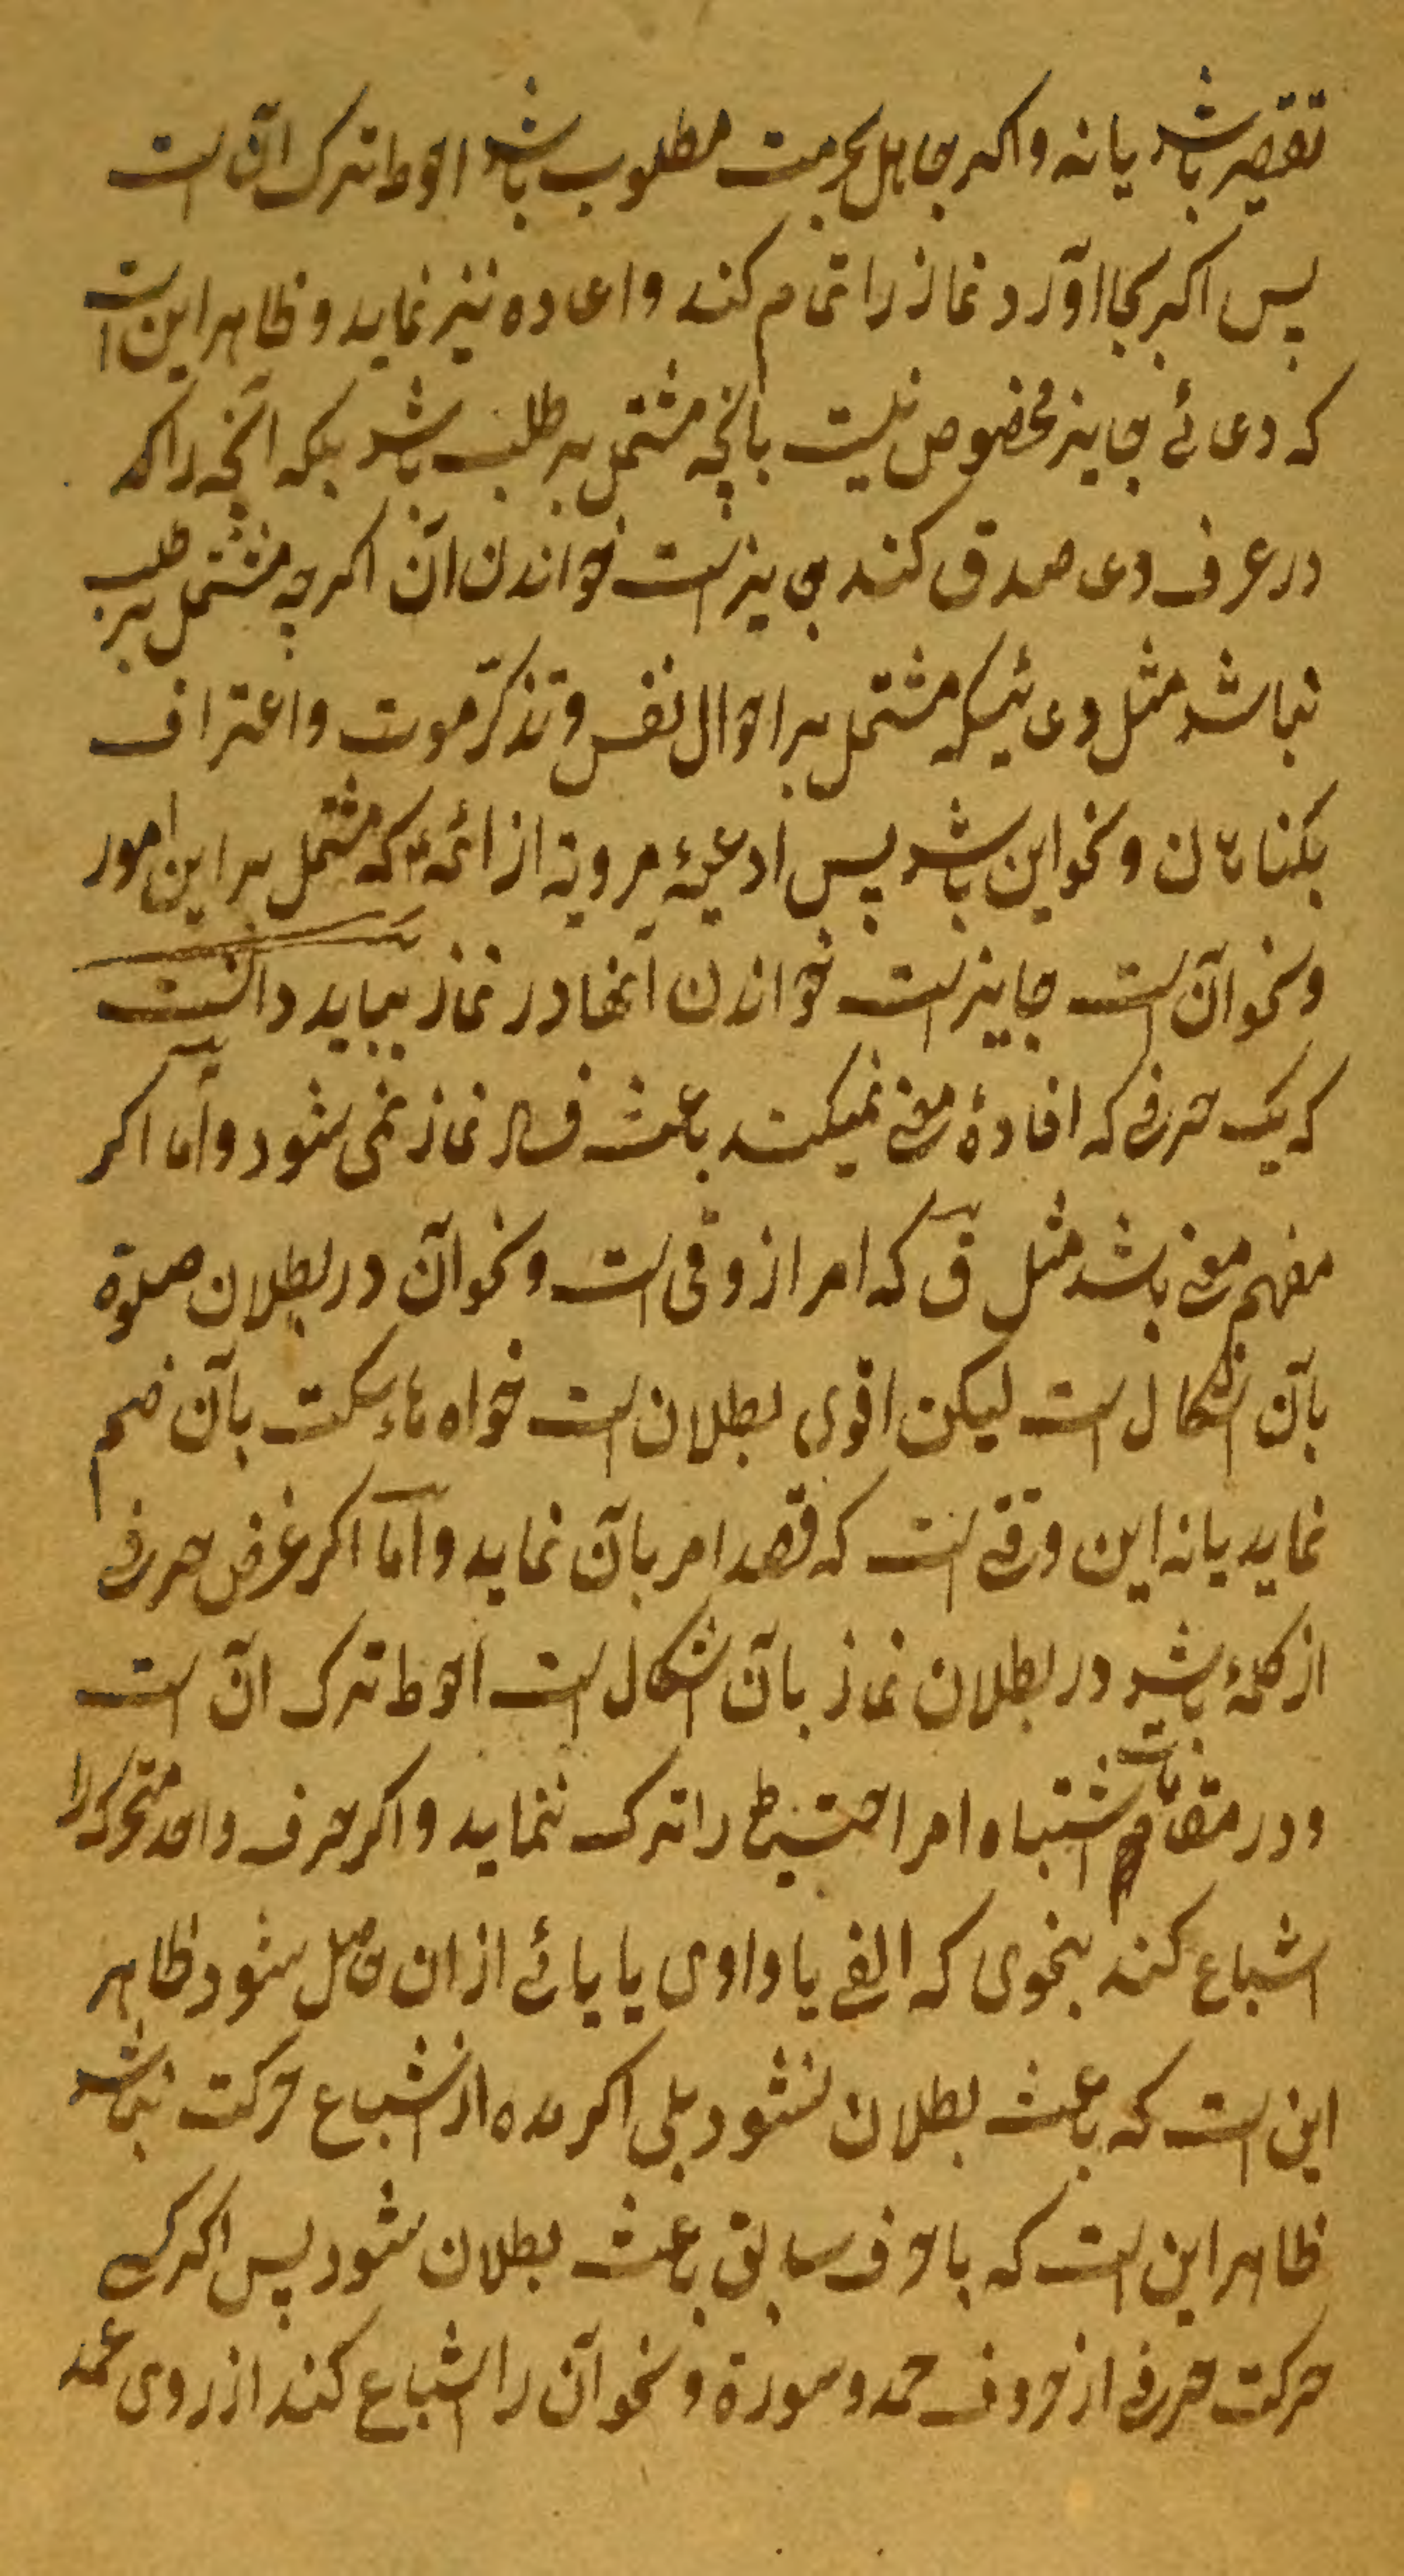 تقصیر باشد یا نه و اکر جاهل بحرمت مطلوب باشد احوط ترک آن است
پس اکر بجا آورد نماز را تمام کند و اعاده نیز نماید و ظاهر این است
که دعائے جایز مخصوص نیست بانچه مشتمل بر طلب باشد بلکه آنچه را که
در عرف دعا صدق کند جایز است خواندن آن اکرچه مشتمل بر طلب
نباشد مثل دعائیکه مشتمل بر احوال نفس و تذکّر موت و اعتراف
بکناهان و نحو این باشد پس ادعیهٔ مرویه از ائمه ع که مشتمل بر این امور
و نحو آن است جایز است خواندن آنها در نماز بباید دانست
که یک حرفے که افادهٔ معنے نمیکند باعث فساد نماز نمی شود و امّا اکر
مفهم معنے باشد مثل ق که امر از وقی است و نحو آن در بطلان صلوة
بآن اشکال است لیکن اقوی بطلان است خواه هاء سکت بآن ضم
نماید یا نه این وقتے است که قصد امر بآن نماید و امّا اکر غرض حرفے
از کلمهٔ باشد در بطلان نماز بآن اشکال است احوط ترک آن است
و در مقامات اشتباه امر احتیاط را ترک ننماید و اکر حرف واحد متحرک را
اشباع کند بنحوی که الفے یا واوی یا یائے از ان حاصل شود ظاهر
این است که باعث بطلان نشود بلی اکر مده از اشباع حرکت نباشد
ظاهر این است که با حرف سابق باعث بطلان شود پس اکر کسے
حرکت حرفے از حروف حمد و سورة و نحو آن را اشباع کند از روی عمد